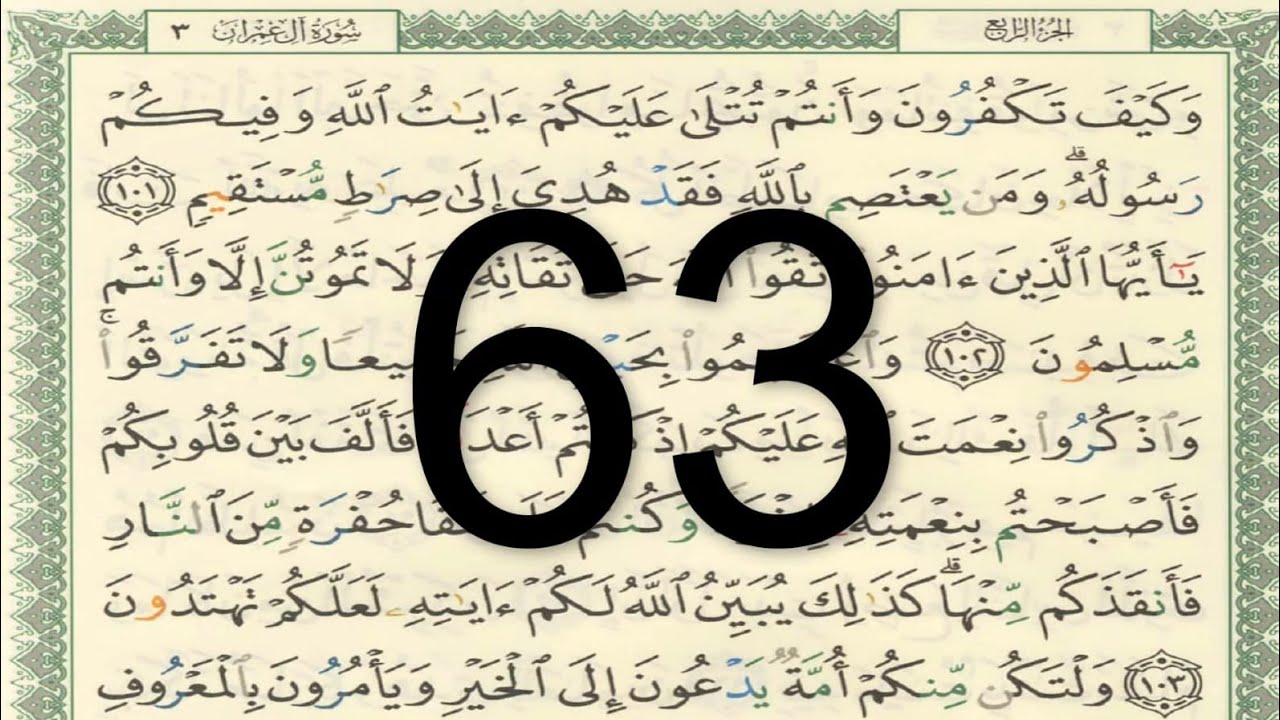 سُورَةُ آلِ عِمْرَانَ ٣
الجُزْءُ الرَّابِعُ
وَكَيْفَ تَكْفُرُونَ وَأَنتُمْ تُتْلَىٰ عَلَيْكُمْ ءَايَٰتُ ٱللَّهِ وَفِيكُمْ
رَسُولُهُۥۗ وَمَن يَعْتَصِم بِٱللَّهِ فَقَدْ هُدِيَ إِلَىٰ صِرَٰطٍ مُّسْتَقِيمٍ ١٠١
يَٰٓأَيُّهَا ٱلَّذِينَ ءَامَنُوا تَّقُوا۟ حَقَّ تُقَاتِهِۦ وَلَا تَمُوتُنَّ إِلَّا وَأَنتُم
مُّسْلِمُونَ ١٠٢ وَٱعْتَصِمُوا۟ بِحَبْلِ جَمِيعًا وَلَا تَفَرَّقُوا۟ۚ
وَٱذْكُرُوا۟ نِعْمَتَ ٱللَّهِ عَلَيْكُمْ إِذْ كُنتُمْ أَعْدَآءً فَأَلَّفَ بَيْنَ قُلُوبِكُمْ
فَأَصْبَحْتُم بِنِعْمَتِهِۦٓ وَكُنتُمْ حُفْرَةٍ مِّنَ ٱلنَّارِ
فَأَنقَذَكُم مِّنْهَاۗ كَذَٰلِكَ يُبَيِّنُ ٱللَّهُ لَكُمْ ءَايَٰتِهِۦ لَعَلَّكُمْ تَهْتَدُونَ
١٠٣ وَلْتَكُن مِّنكُمْ أُمَّةٌ يَدْعُونَ إِلَى ٱلْخَيْرِ وَيَأْمُرُونَ بِٱلْمَعْرُوفِ
63